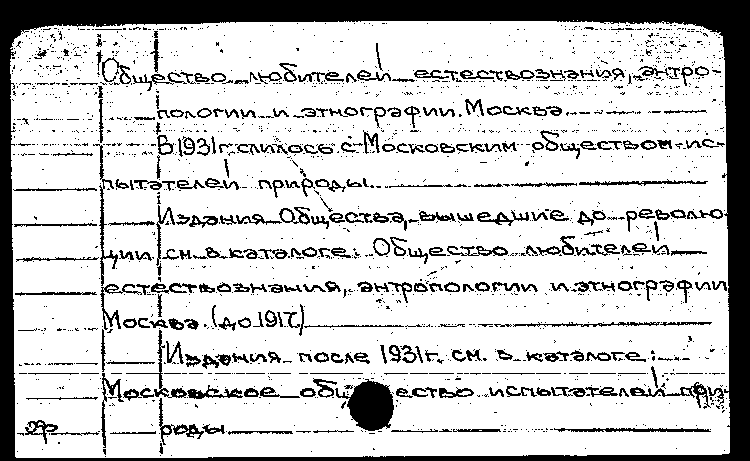 Общество любителей естествознания, антро-
пологии и этнографии. Москва.
В 1931г. слилось с Московским обществом ис-
пытателей природы.
Издания Общества, вышедшие до револю-
ции см. в каталоге: Общество любителей
естествознания, антропологии и этнографии
Москва (до 1917)
Издания после 1931г. см. в каталоге:
Московское общество испытателей при-
роды